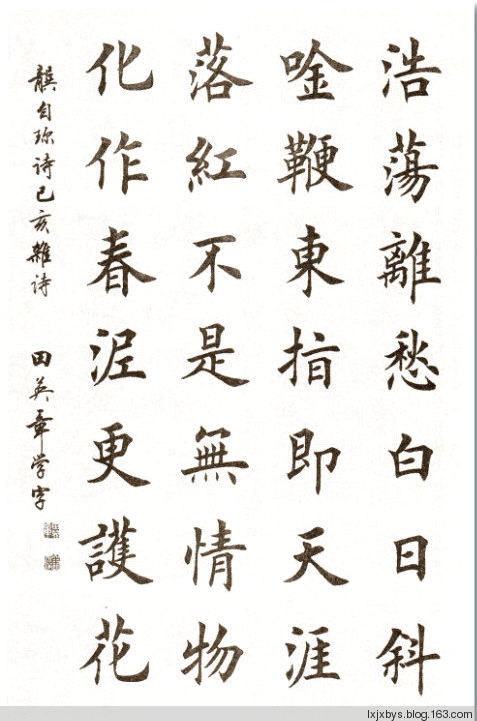 浩蕩離愁白日斜
唫鞭東指即天涯
落紅不是無情物
化作春泥更護花
龔自珎诗己亥雜诗
田英章学字
lxjxbys.blog.163.com